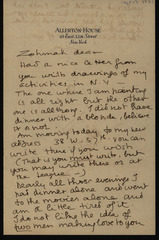 ALLERTON HOUSE
New York
Zohmah dear—
Had a nice letter from
you with drawings of my
activities in N.Y.
The one where I am painting
is all right but the other
one is all wrong. I did not have
dinner with a blonde, believe
it or not.
Am moving today to my new
address 38 W. 57th you can
write there if you wish
(That is you must write, but
you may write there or at
the League —)
Nearly all these evenings I
had dinner alone and went
to the movies alone and
am a little tired of it
I do not like the idea of
two men making love to you